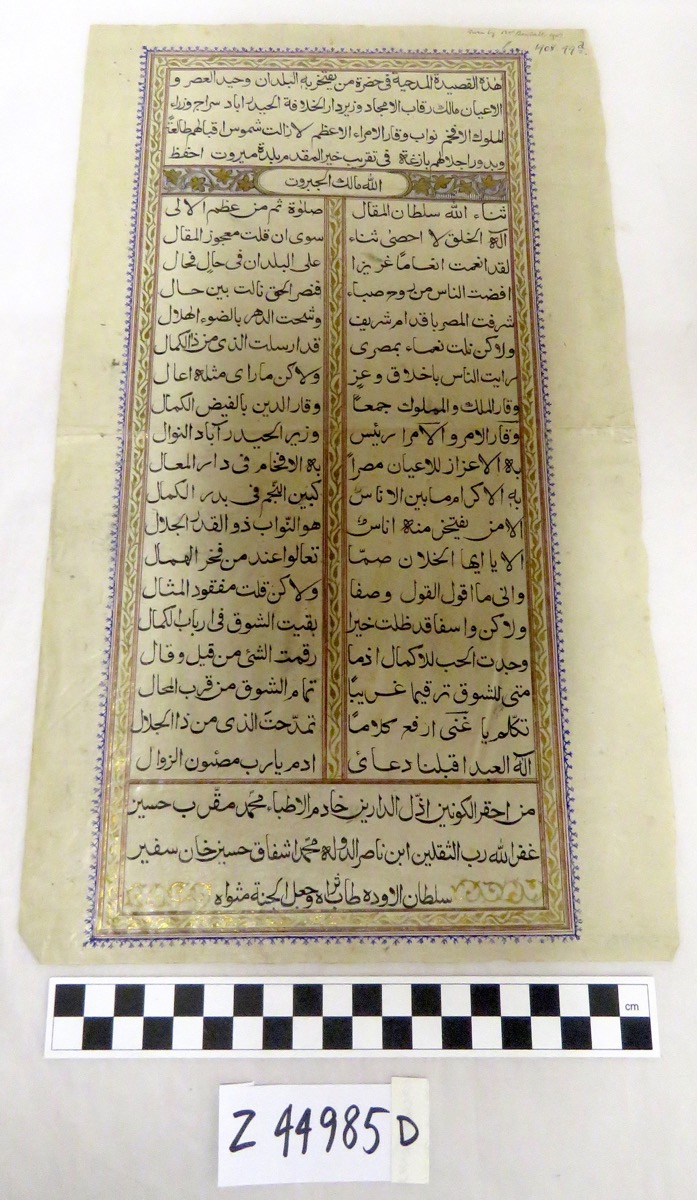 408.99 D
هذه القصيدة المدحية فى حضرة من يفتخر به البلدان وحيد العصر و
الاعيان مالك رقاب الامجاد وزير دار الخلافة الحيدراباد سراج وزراء
الملوك الافخم نواب وقار الامراء الاعظم لا زالت شموس اقبالهم طالعةً
وبدور اجلالهم بازغة فى تقريب خير المقدم ببلدة ميروت احفظ
الله مالك الجبروت
ثناء الله سلطان المقال صلوة ثم من عظم الالى
آلهَ الخلق لا احصى ثناء سوى ان قلت معجوز المقال
لقد انعمت انعاما غزيزا على البلدان فى حال فحال
افضت الناس من بوح صباء فنصر الحق نالت بين حال
شرفت المصر باقدام شريف وشحت الدهر بالضوء الهلال
ولاكن نلت نعماء بمصرى قد ارسلت الذى من ذا الكمال
رايت الناس باخلاق وعز ولاكن ما راى مثله اعال
وقار الملك والمملوك جمعاً وقار الدين بالفيض الكمال
وقار الامر والامرا رئيس وزير الحيدرآباد النوال
به الاعزاز للاعيان مصراً به الافخام فى دار المعال
به الاكرام ما بين الاناس كبين النجم فى بدر الكمال
الا من يفتخر منه اناس هو النواب ذو القدر الجلال
الا يا ايها الخلان صمّا تعالوا عند من فخر الهمال
وانى ما اقول القول وصفا ولاكن قلت مفقود المثال
ولاكن واسفا قد ظلت خيرا بقيت الشوق فى ارباب الكمال
وجدت الحب للاكمال اذما رقمت الشئ من قيل وقال
متى للشوق ترقيما غريباً تمام الشوق من قرب المحال
تكلم يا غنى ارفع كلاما تمدحت الذى من ذا الجلال
آله العبد اقبلنا دعائ ادم يا رب مصئون الزوال
من احقر الكونين اذل الدارين خادم الاطباء محمد مقرب حسين
غفر الله رب الثقلين ابن ناصر الدوله محمد اشفاق حسين خان سفير
سلطان الاوده طاب ثراه وجعل الجنة مثواه
cm
Z 44985 D